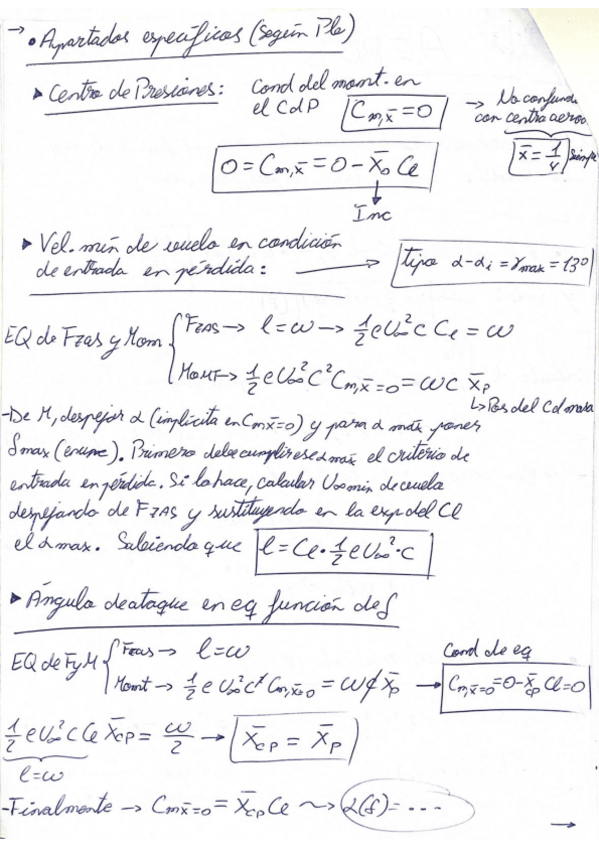 → • Apartados específicos (Según Pb)
▸ Centro de Presiones: Cond del momt. en el CdP C_{m,x̄}=0 → No confundi con centro aero
0 = C_{m,x̄} = 0 - x̄_0 Cl x̄ = 1/4 siempre
↓
Inc
▸ Vel. mín de vuelo en condición
de entrada en pérdida: ⟶ tipo α-α_i = γ_max = 13º
EQ de Fzas y Mom { Fzas → l = w → 1/2 ρU∞² c Cl = w
Momt → 1/2 ρU∞² c² C_{m,x̄=0} = wc x̄_p
↳ Pos del Cd masa
-De M, despejar α (implícita en C_{m x̄=0}) y para α máx poner
δmax (enunc). Primero debe cumplir ese α máx el criterio de
entrada en pérdida. Si lo hace, calcular U∞ min de vuelo
despejando de Fzas y sustituyendo en la exp del Cl
el α max. Sabiendo que l = Cl · 1/2 ρU∞² · c
▸ Ángulo de ataque en eq función de δ
EQ de F y M { Fzas → l = w Cond de eq
Momt → 1/2 ρ U∞² c² C_{m,x̄=0} = w c x̄_p → C_{m,x̄=0} = 0 - x̄_{cp} Cl = 0
1/2 ρU∞² c Cl x̄_{CP} = w/2 → x̄_{CP} = x̄_P
l = w
-Finalmente → C_{m x̄=0} = x̄_{cp} Cl ⤳ α(δ) = ...
→